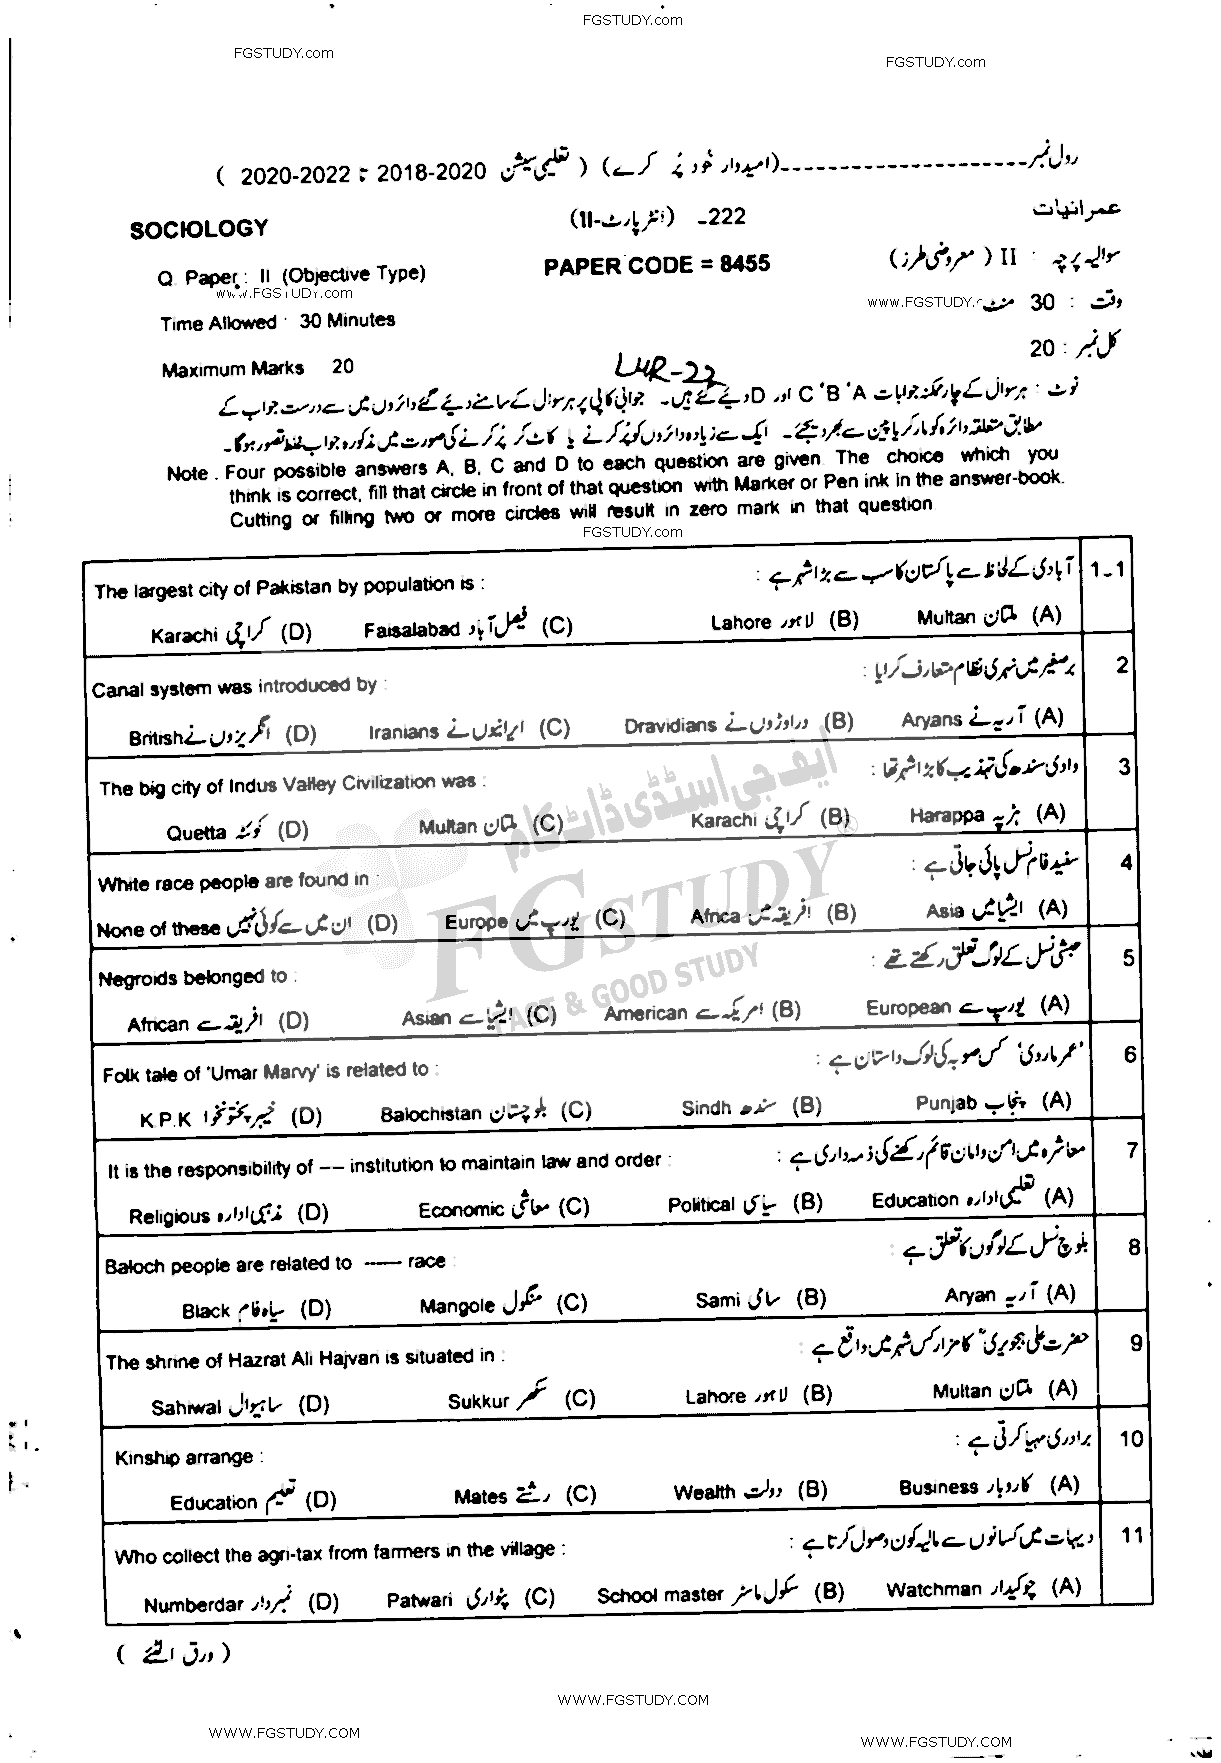 FGSTUDY.com
FGSTUDY.com
FGSTUDY.com
رول نمبر ---------------------- (امیدوار خود پُر کرے) ( تعلیمی سیشن 2018-2020 تا 2020-2022 )
SOCIOLOGY 222- (انٹر پارٹ-II) عمرانیات
Q. Paper : II (Objective Type) PAPER CODE = 8455 سوالیہ پرچہ : II ( معروضی طرز)
www.FGSTUDY.com www.FGSTUDY.c
Time Allowed : 30 Minutes وقت : 30 منٹ
Maximum Marks 20 کل نمبر : 20
LHR-22
نوٹ : ہر سوال کے چار ممکنہ جوابات A ' B ' C اور D دیئے گئے ہیں۔ جوابی کاپی پر ہر سوال کے سامنے دیئے گئے دائروں میں سے درست جواب کے
مطابق متعلقہ دائرہ کو مارکر یا پین سے بھر دیجئے۔ ایک سے زیادہ دائروں کو پُر کرنے یا کاٹ کر پُر کرنے کی صورت میں مذکورہ جواب غلط تصور ہوگا۔
Note . Four possible answers A, B, C and D to each question are given. The choice which you
think is correct, fill that circle in front of that question with Marker or Pen ink in the answer-book.
Cutting or filling two or more circles will result in zero mark in that question.
FGSTUDY.com
1-1 آبادی کے لحاظ سے پاکستان کا سب سے بڑا شہر ہے :
The largest city of Pakistan by population is :
(A) ملتان Multan (B) لاہور Lahore (C) فیصل آباد Faisalabad (D) کراچی Karachi
2 برصغیر میں نہری نظام متعارف کرایا :
Canal system was introduced by :
(A) آریہ نے Aryans (B) دراوڑوں نے Dravidians (C) ایرانیوں نے Iranians (D) انگریزوں نے British
3 وادی سندھ کی تہذیب کا بڑا شہر تھا :
The big city of Indus Valley Civilization was :
(A) ہڑپہ Harappa (B) کراچی Karachi (C) ملتان Multan (D) کوئٹہ Quetta
4 سفید فام نسل پائی جاتی ہے :
White race people are found in :
(A) ایشیا میں Asia (B) افریقہ میں Africa (C) یورپ میں Europe (D) ان میں سے کوئی نہیں None of these
5 حبشی نسل کے لوگ تعلق رکھتے تھے :
Negroids belonged to :
(A) یورپ سے European (B) امریکہ سے American (C) ایشیا سے Asian (D) افریقہ سے African
6 'عمر ماروی' کس صوبہ کی لوک داستان ہے :
Folk tale of 'Umar Marvy' is related to :
(A) پنجاب Punjab (B) سندھ Sindh (C) بلوچستان Balochistan (D) خیبر پختونخوا K.P.K
7 معاشرہ میں امن و امان قائم رکھنے کی ذمہ داری ہے :
It is the responsibility of –– institution to maintain law and order :
(A) تعلیمی ادارہ Education (B) سیاسی Political (C) معاشی Economic (D) مذہبی ادارہ Religious
8 بلوچ نسل کے لوگوں کا تعلق ہے :
Baloch people are related to ––– race :
(A) آریہ Aryan (B) سامی Sami (C) منگول Mangole (D) سیاہ فام Black
9 حضرت علی ہجویری کا مزار کس شہر میں واقع ہے :
The shrine of Hazrat Ali Hajvari is situated in :
(A) ملتان Multan (B) لاہور Lahore (C) سکھر Sukkur (D) ساہیوال Sahiwal
10 برادری مہیا کرتی ہے :
Kinship arrange :
(A) کاروبار Business (B) دولت Wealth (C) رشتے Mates (D) تعلیم Education
11 دیہات میں کسانوں سے مالیہ کون وصول کرتا ہے :
Who collect the agri-tax from farmers in the village :
(A) چوکیدار Watchman (B) سکول ماسٹر School master (C) پٹواری Patwari (D) نمبردار Numberdar
( ورق الٹئے )
ایف جی اسٹڈی ڈاٹ کام
FGSTUDY ®
FAST & GOOD STUDY
WWW.FGSTUDY.COM
WWW.FGSTUDY.COM
WWW.FGSTUDY.COM